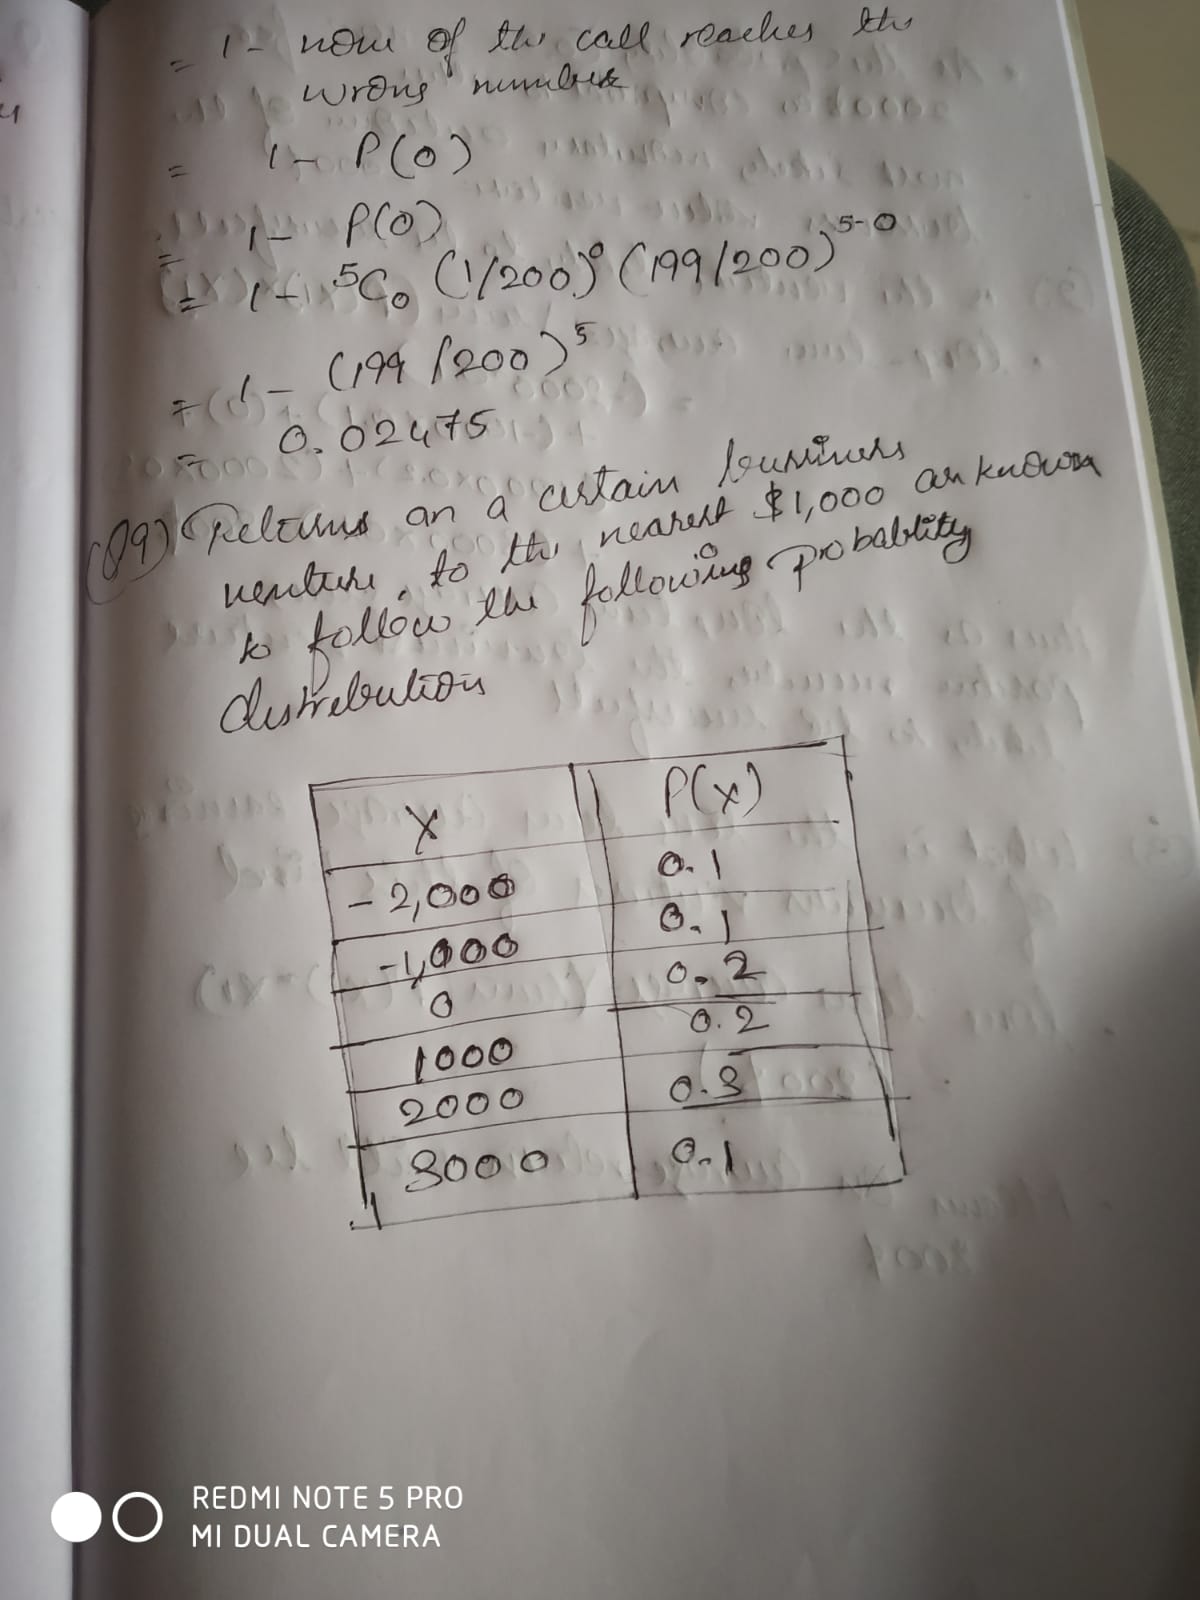 = 1 - none of the call reaches the
wrong number
= 1 - P(0)
= 1 - P(0)
= 1 - ⁵C₀ (1/200)⁰ (199/200)⁵⁻⁰
= 1 - (199/200)⁵
= 0.02475
(Q9) Returns on a certain business
venture, to the nearest $1,000 are known
to follow the following probablity
distribution
x P(x)
- 2,000 0.1
-1,000 0.1
0 0.2
1000 0.2
2000 0.3
3000 0.1
REDMI NOTE 5 PRO
MI DUAL CAMERA